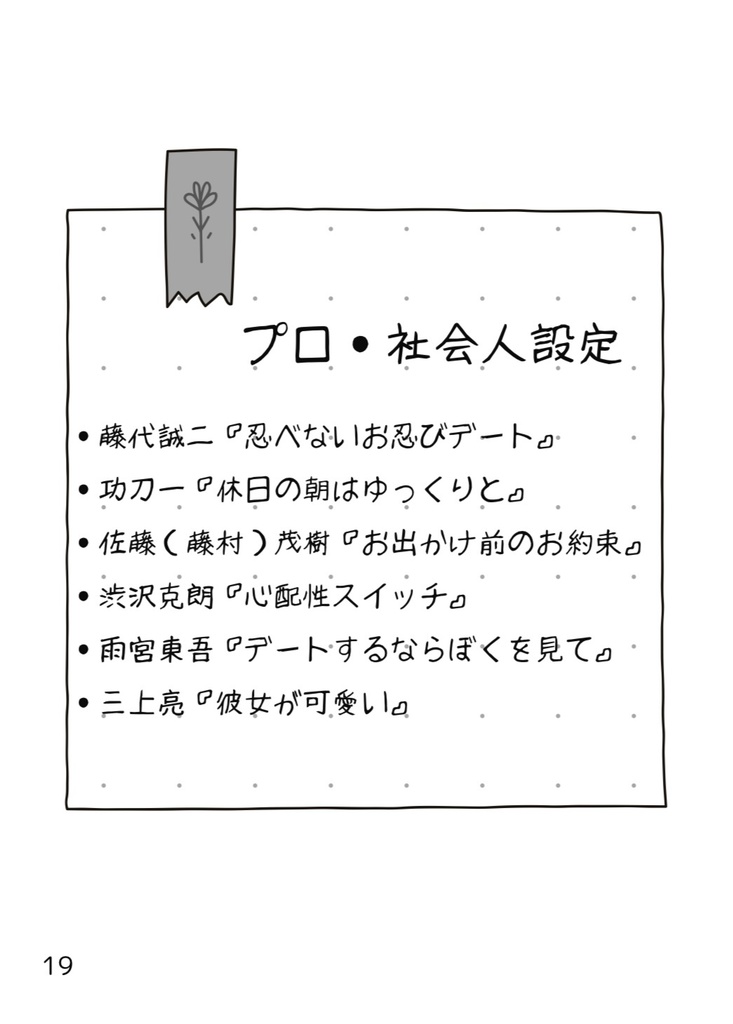 プロ・社会人設定
・藤代誠二『忍べないお忍びデート』
・功刀一『休日の朝はゆっくりと』
・佐藤(藤村)茂樹『お出かけ前のお約束』
・渋沢克朗『心配性スイッチ』
・雨宮東吾『デートするならぼくを見て』
・三上亮『彼女が可愛い』
19